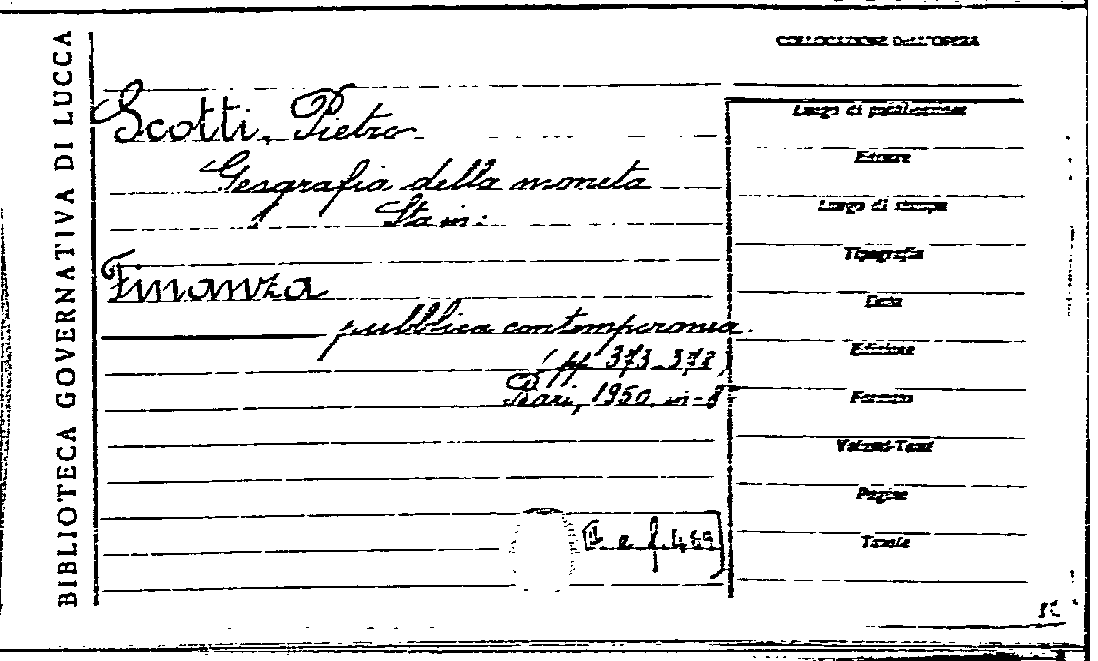 BIBLIOTECA GOVERNATIVA DI LUCCA
COLLOCAZIONE DELL'OPERA
Scotti, Pietro
Geografia della moneta
Sta in:
Finanza
pubblica contemporanea.
(pp 373-378)
Bari, 1950. in-8°
Luogo di pubblicazione
Editore
Luogo di stampa
Tipografia
Data
Edizione
Formato
Volumi-Tomi
Pagine
Tavole